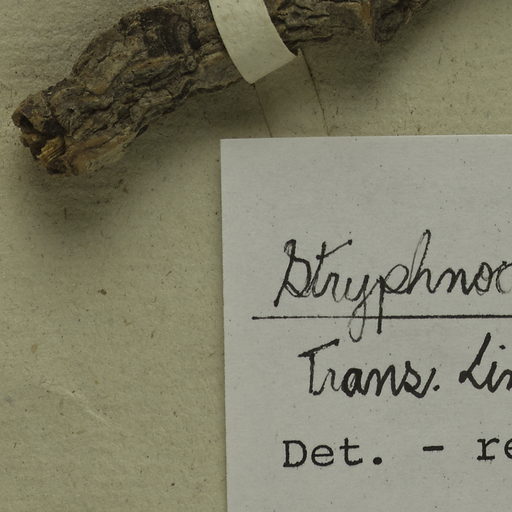 Stryphnoc
Trans. Lin
Det. - re